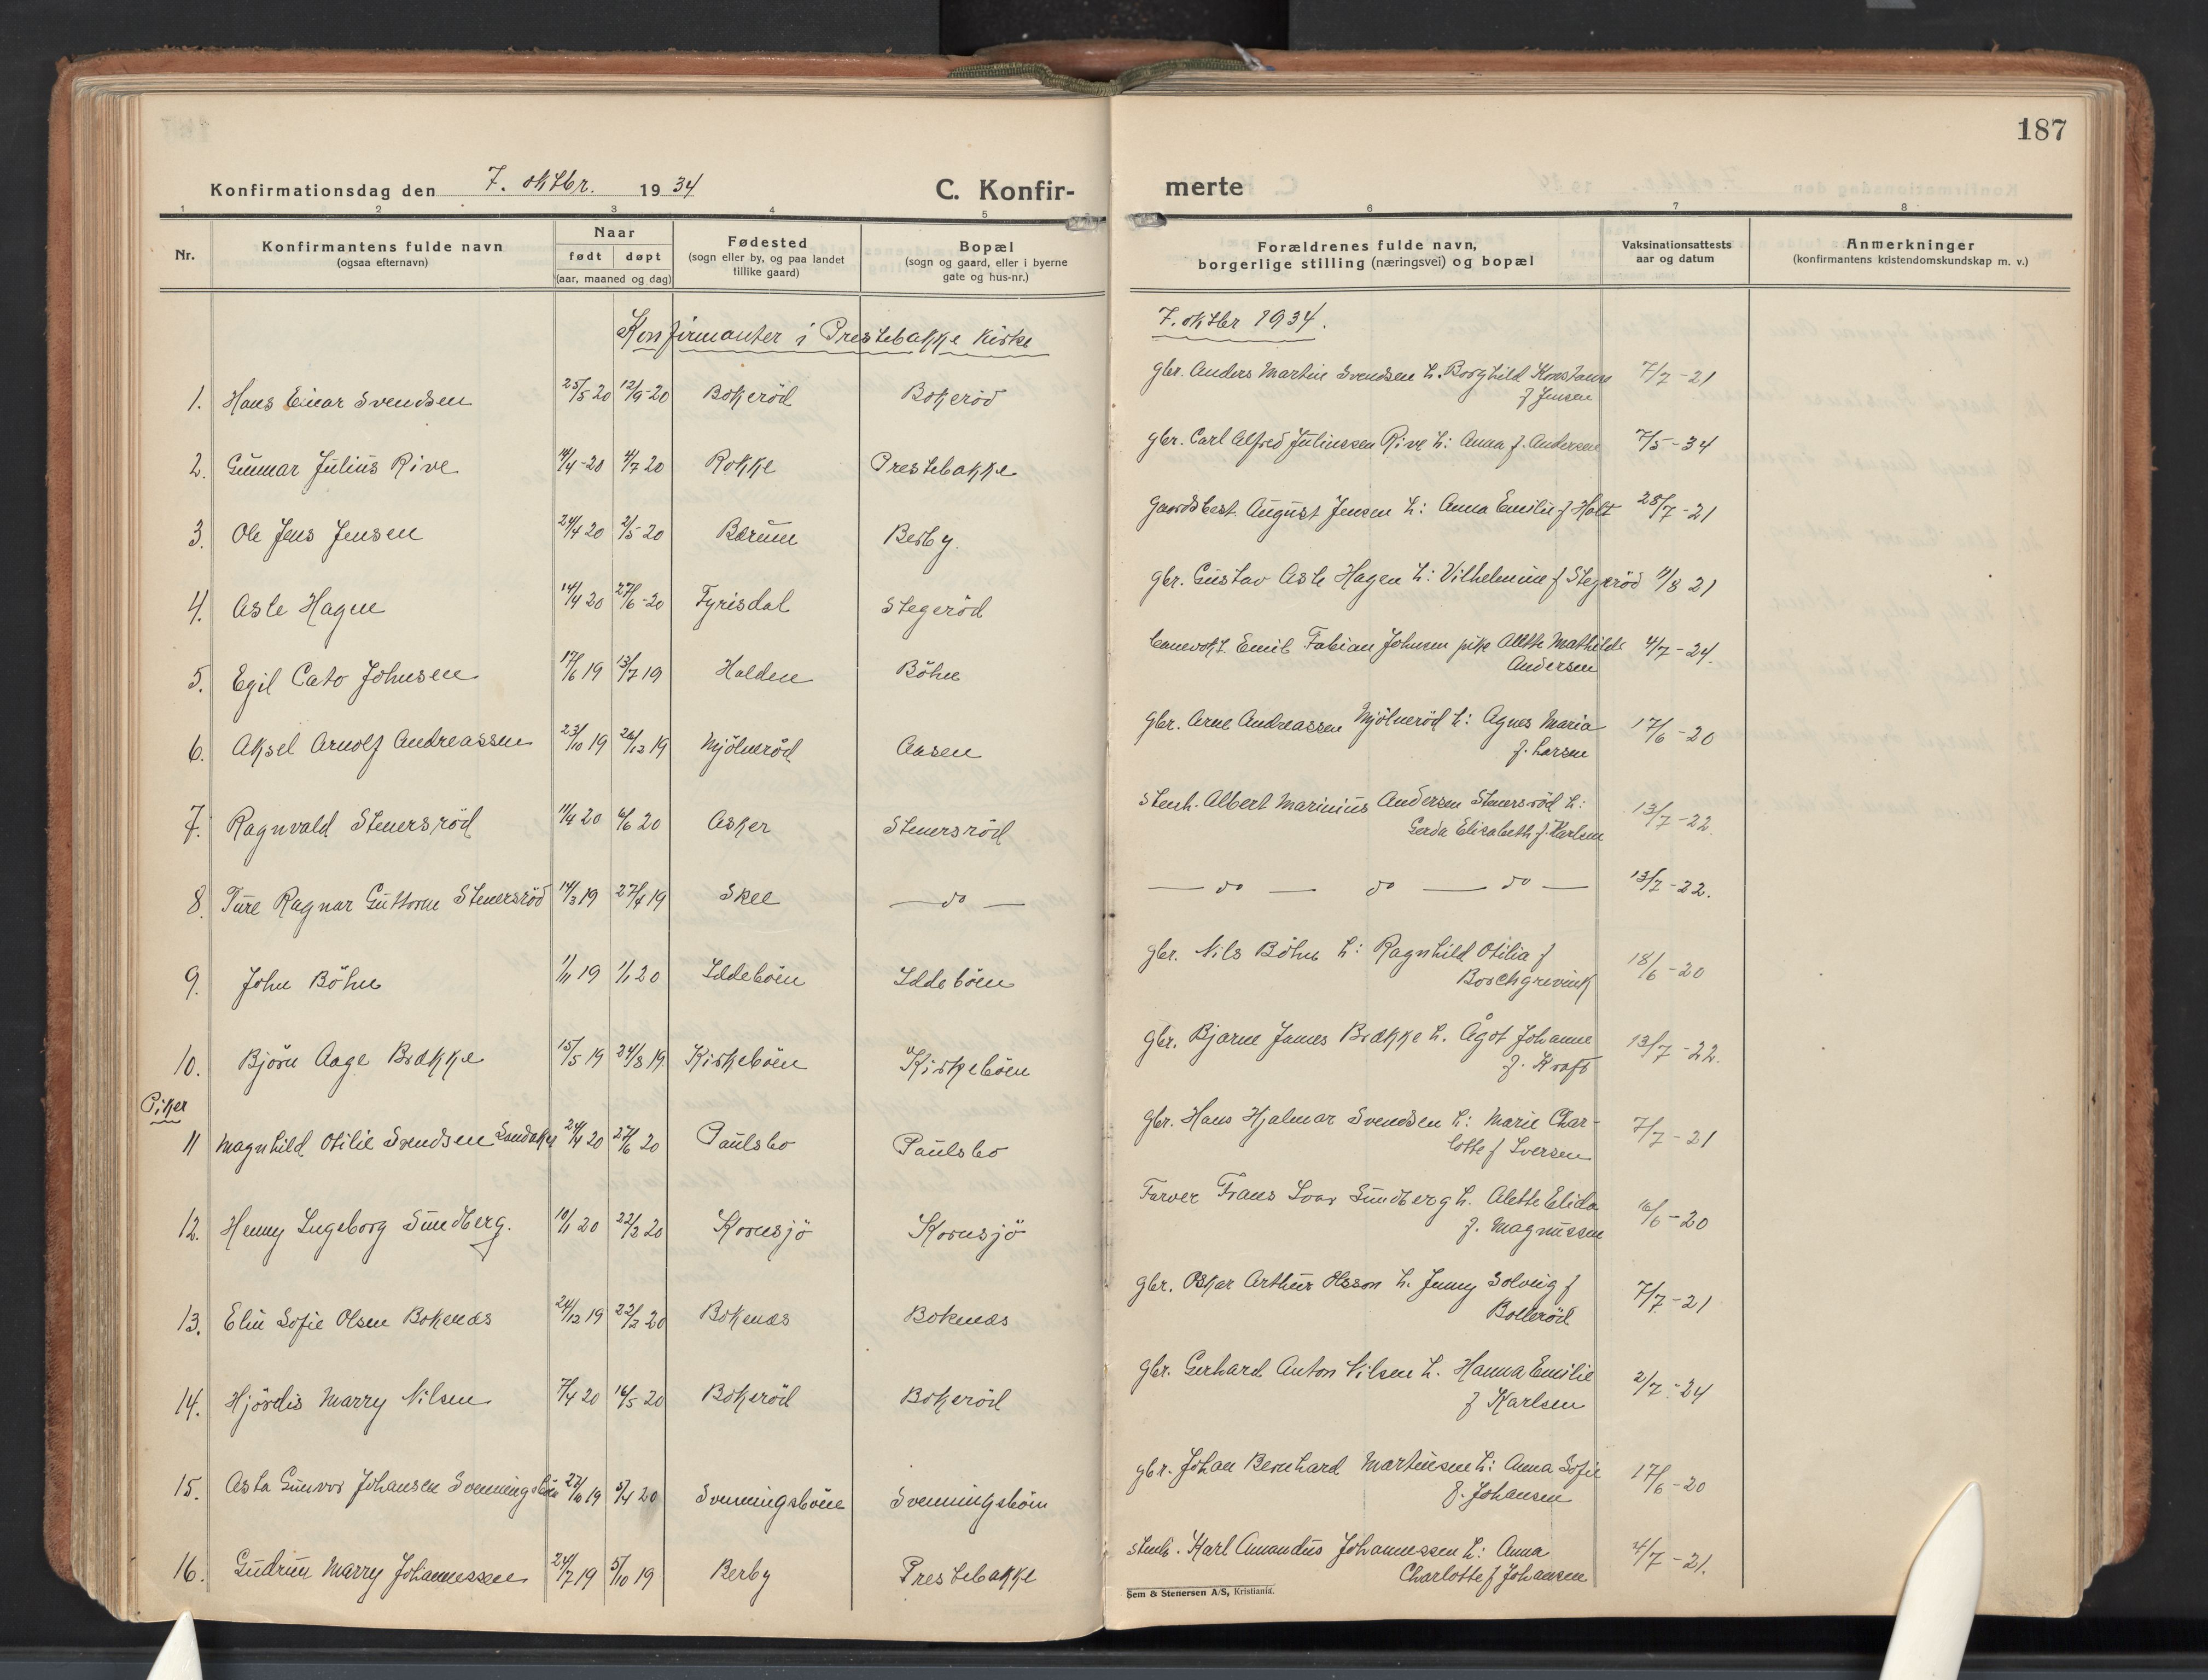 187
Konfirmationsdag den 7. oktbr. 1934
C. Konfir-
merte
1 2 3 4 5 6 7 8
Nr.
Konfirmantens fulde navn
(ogsaa efternavn)
Naar
født døpt
(aar, maaned og dag)
Fødested
(sogn eller by, og paa landet
tillike gaard)
Bopæl
(sogn og gaard, eller i byerne
gate og hus-nr.)
Forældrenes fulde navn,
borgerlige stilling (næringsvei) og bopæl
Vaksinationsattests
aar og datum
Anmerkninger
(konfirmantens kristendomskundskap m. v.)
Konfirmanter i Prestebakke kirke 7. oktbr 1934.
1. Hans Einar Svendsen 25/5 20 12/9-20 Bokeröd Bokeröd gbr. Anders Martin Svendsen h. Borghild Konstanse 7/7-21
f Jensen
2. Gunnar Julius Rive 4/7 20 Rokke Prestebakke gbr. Carl Alfred Juliussen Rive h: Anna f. Andersen 7/5-34
3. Ole Jens Jensen 24/4 20 2/5-20 Bærum Berby. Gaardsbest. August Jensen h: Anna Emilie f Holt 28/7-21
4. Asle Hagen 14/4 20 27/6-20 Fyrisdal Stegeröd gbr. Gustav Asle Hagen h: Vilhelmine f Stegeröd 11/8 21
5. Egil Cato Johnsen 17/6 19 13/7 19 Halden Böhn banevokt. Emil Fabian Johnsen pike Alette Mathilde 4/7-24.
Andersen
6. Aksel Arnolf Andreassen 23/10 19 26/12 19 Mjölneröd Aasen gbr. Arne Andreassen Mjölneröd h: Agnes Maria 17/6-20
f. Larsen
7. Ragnvald Stenersröd 11/4 20 6/6 20 Asker Stenersröd Stenh. Albert Marinius Andersen Stenersröd h: 13/7-22.
Gerda Elisabeth f. Karlsen
8. Ture Ragnar Guttorm Stenersröd 14/3 19 27/4 19 Skee — do — — do — do — do — 13/7-22.
9. John Böhn 1/11 19 1/1 20 Iddeböen Iddeböen gbr. Nils Böhn h: Ragnhild Otilia f 18/6-20
Borchgrevink
10. Björn Aage Brække 15/5 19 24/8 19. Kirkeböen Kirkeböen gbr. Bjarne James Brække h. Ågot Johanne 13/7-22.
f. Kraft
Piker
11 Magnhild Otilie Svendsen Sandaker 24/4 20 27/6 20 Paulsbo Paulsbo gbr. Hans Hjalmar Svendsen h: Marie Char- 7/7-21
lotte f Iversen
12. Henny Ingeborg Sundberg. 10/1 20 22/2 20 Kornsjö Kornsjö Farver Frans Ivar Sundberg h. Alette Elida 16/6-20
f. Magnussen
13. Elin Sofie Olsen Bokenæs 24/12 19 22/2 20 Bokenæs Bokenæs gbr. Oskar Arthur Olsson h. Jenny Solveig f 7/7-21
Bolleröd
14. Hjördis Marry Nilsen 7/4 20 16/5 20 Bokeröd Bokeröd gbr. Gerhard Anton Nilsen h. Hanna Emilie 2/7-24
f Karlsen
15. Asta Gunvor Johansen Svenningsböen 27/6 19 5/4 20 Svenningsböen Svenningsböen gbr. Johan Bernhard Martinsen h: Anna Sofie 17/6-20
f. Johansen
16. Gudrun Marry Johannessen 24/7 19 5/10 19 Berby Prestebakke stenh. Karl Amandus Johannessen h: Anna 4/7-21.
Charlotte f Johansen
Sem & Stenersen A/S, Kristiania.